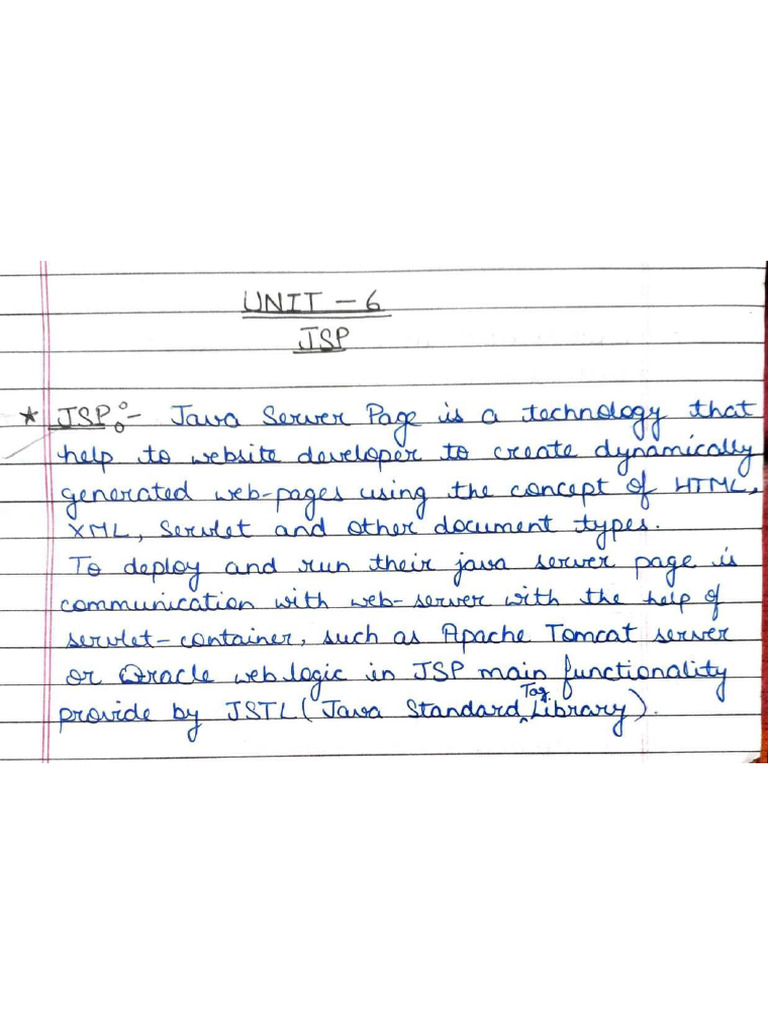 UNIT - 6
JSP
* JSP :- Java Server Page is a technology that
help to website developer to create dynamically
generated web-pages using the concept of HTML,
XML, Servlet and other document types.
To deploy and run their java server page is
communication with web-server with the help of
servlet-container, such as Apache Tomcat server
or Oracle web logic in JSP main functionality
provide by JSTL (Java Standard Tag Library).